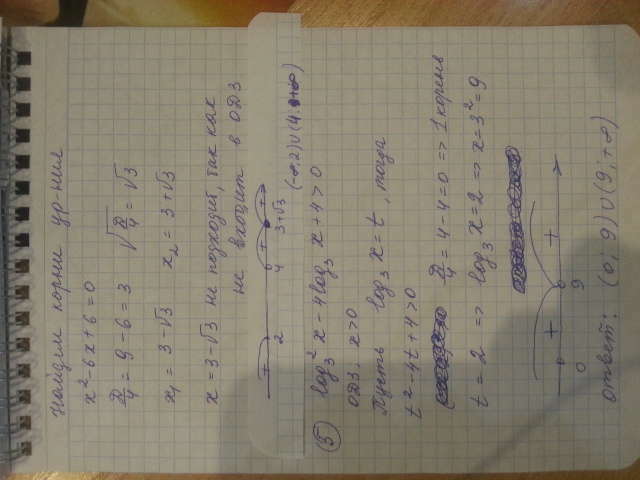 Найдем корни ур-ния
x² - 6x + 6 = 0
D/4 = 9 - 6 = 3 √(D/4) = √3
x₁ = 3 - √3 x₂ = 3 + √3
x = 3 - √3 не подходит, так как
не входит в ОДЗ
+ + +
2 4 3+√3 (-∞; 2) ∪ (4; +∞)
⑤ log₃² x - 4 log₃ x + 4 > 0
ОДЗ: x > 0
Пусть log₃ x = t, тогда
t² - 4t + 4 > 0
D/4 = 4 - 4 = 0 => 1 корень
t = 2 => log₃ x = 2 => x = 3² = 9
+ +
0 9
ответ: (0; 9) ∪ (9; +∞)